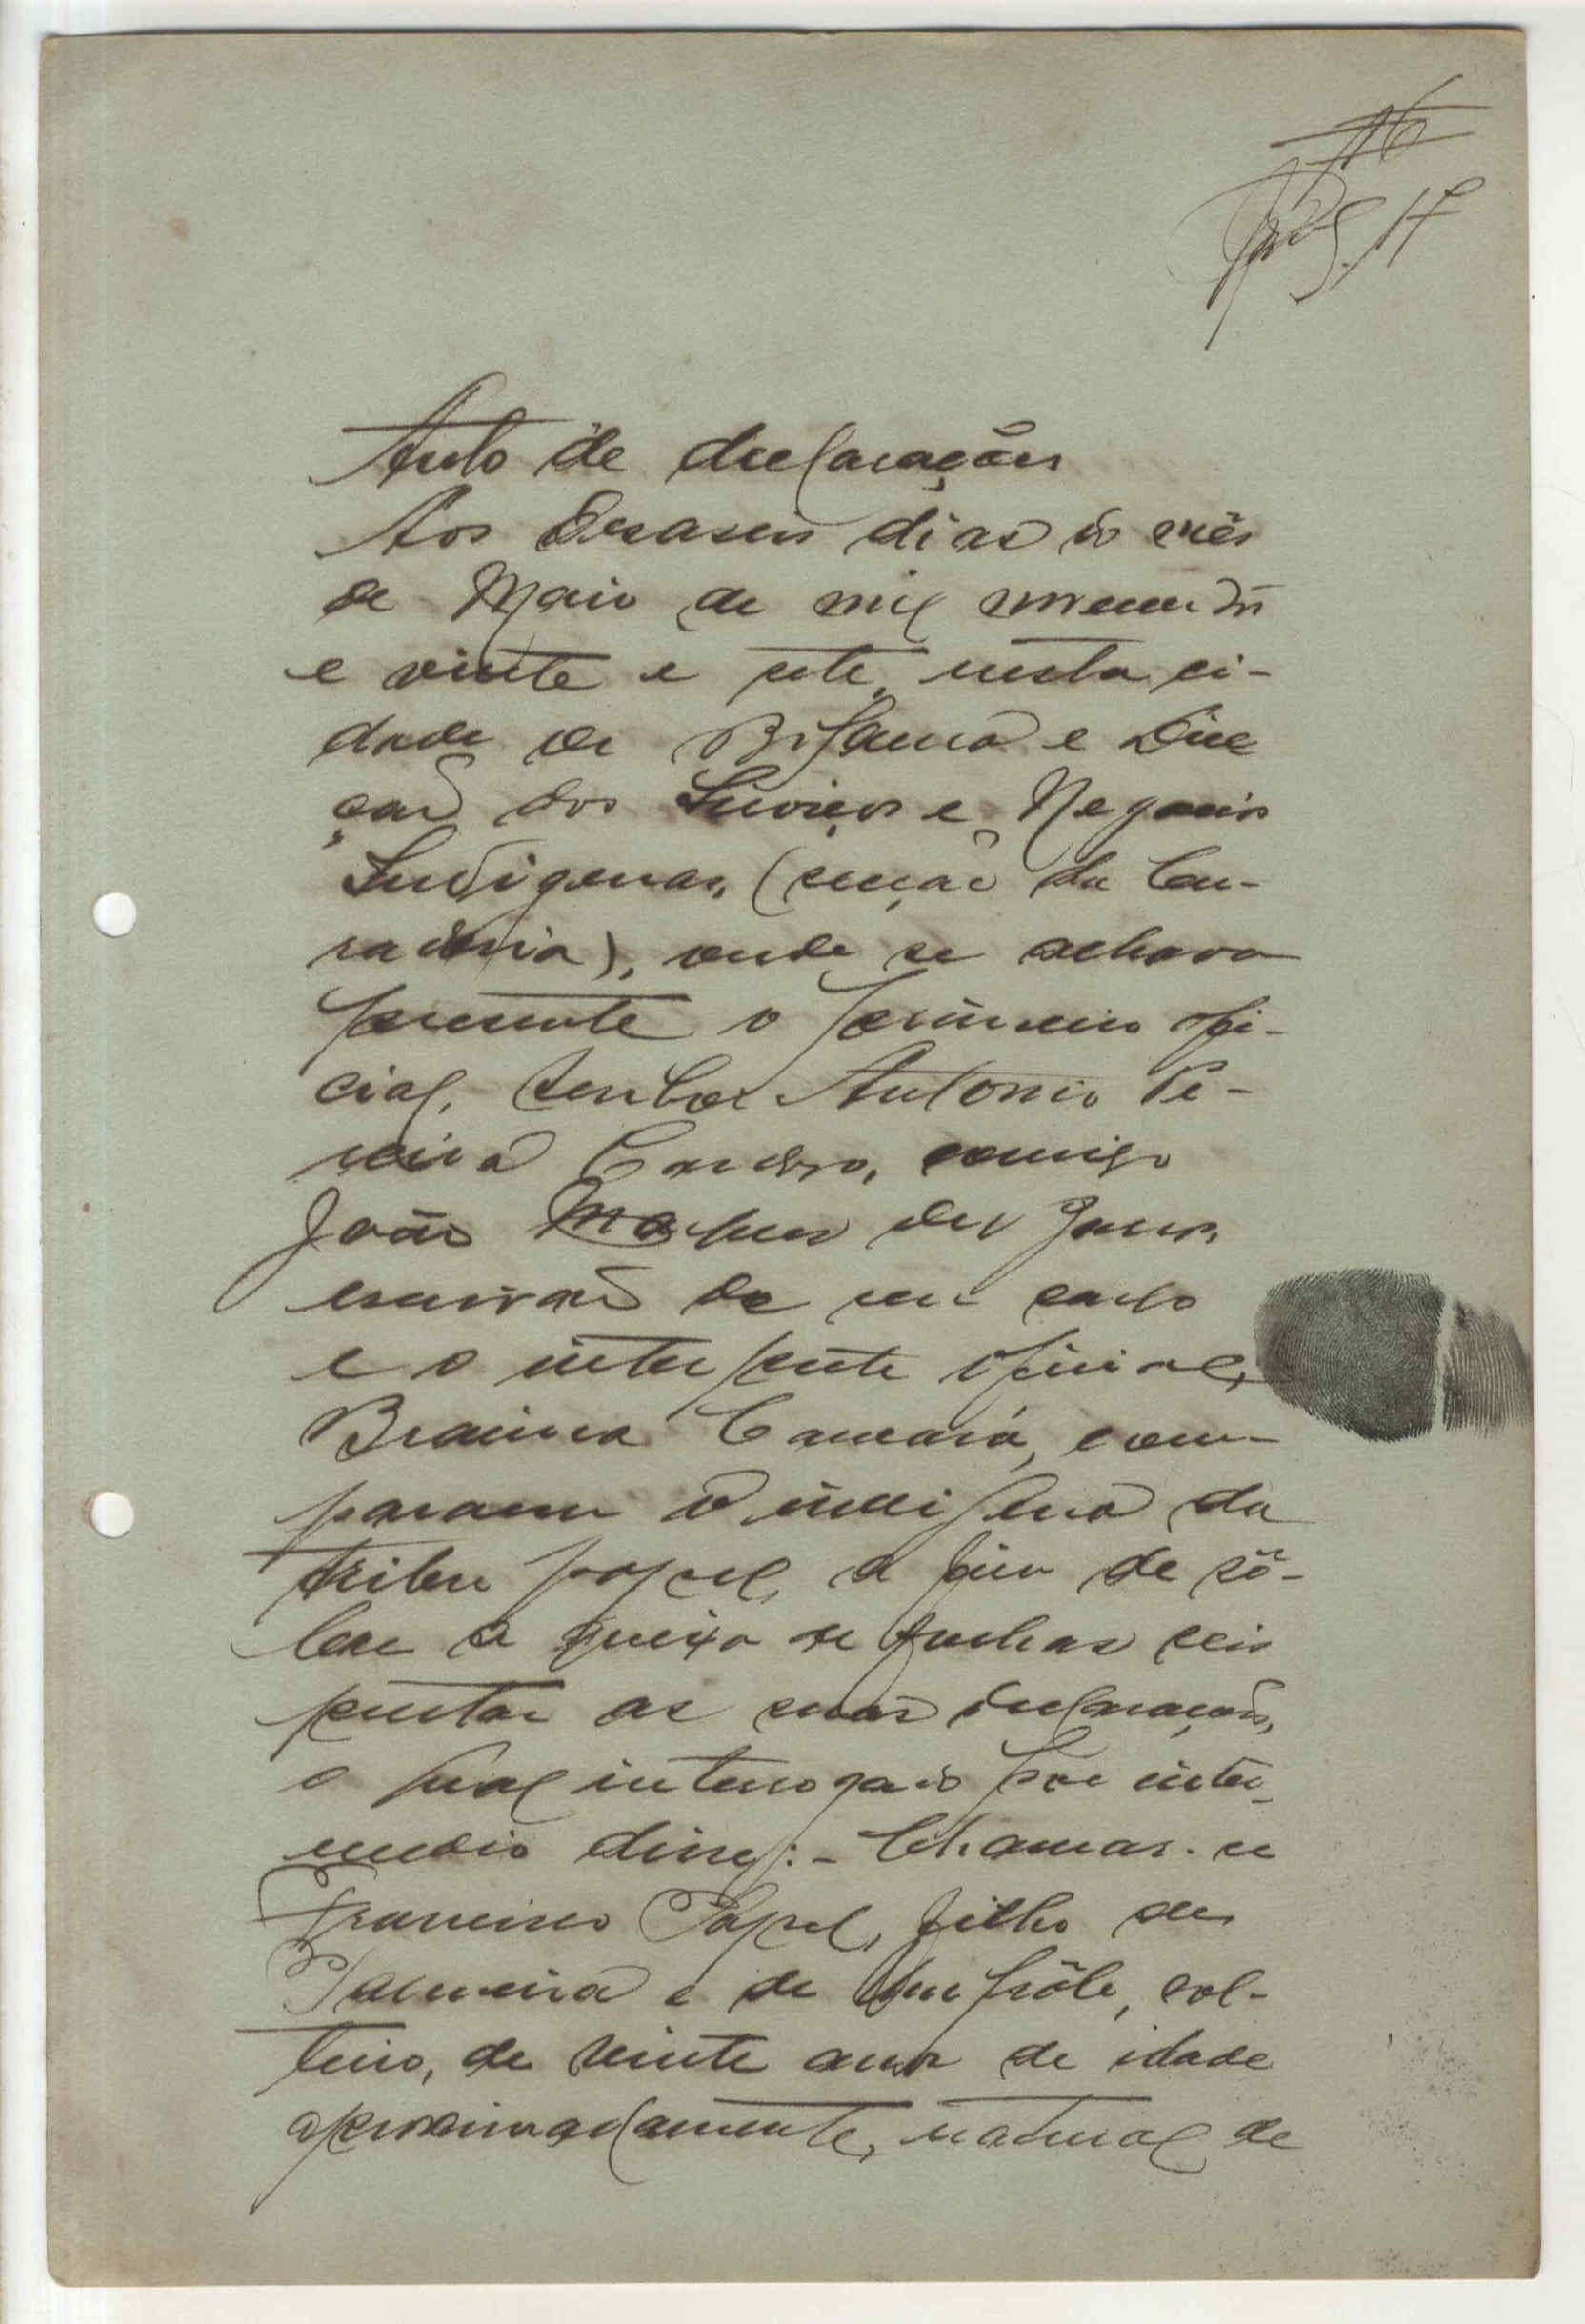 16
17
Auto de declarações
Aos desaseis dias do mês
de Maio de mil novecentos
e vinte e sete, nesta ci-
dade de Bolama e Dire
ção dos Serviços e Negocios
Indigenas, (secção da Cu-
radoria), onde se achava
presente o primeiro ofi-
cial, senhor Antonio Pe-
reira Cardoso, comigo
João Marques de
escrivão de seu cargo
e o interprete oficial,
Braima Camará, com-
pareceu o indigena da
tribu papel, a fim de sô-
bre a queixa de folhas seis
prestar as suas declarações,
o qual interrogado por inter-
medio disse: - Chamar-se
Francisco Papel, filho de
e de, sol-
teiro, de vinte anos de idade
aproximadamente, natural de